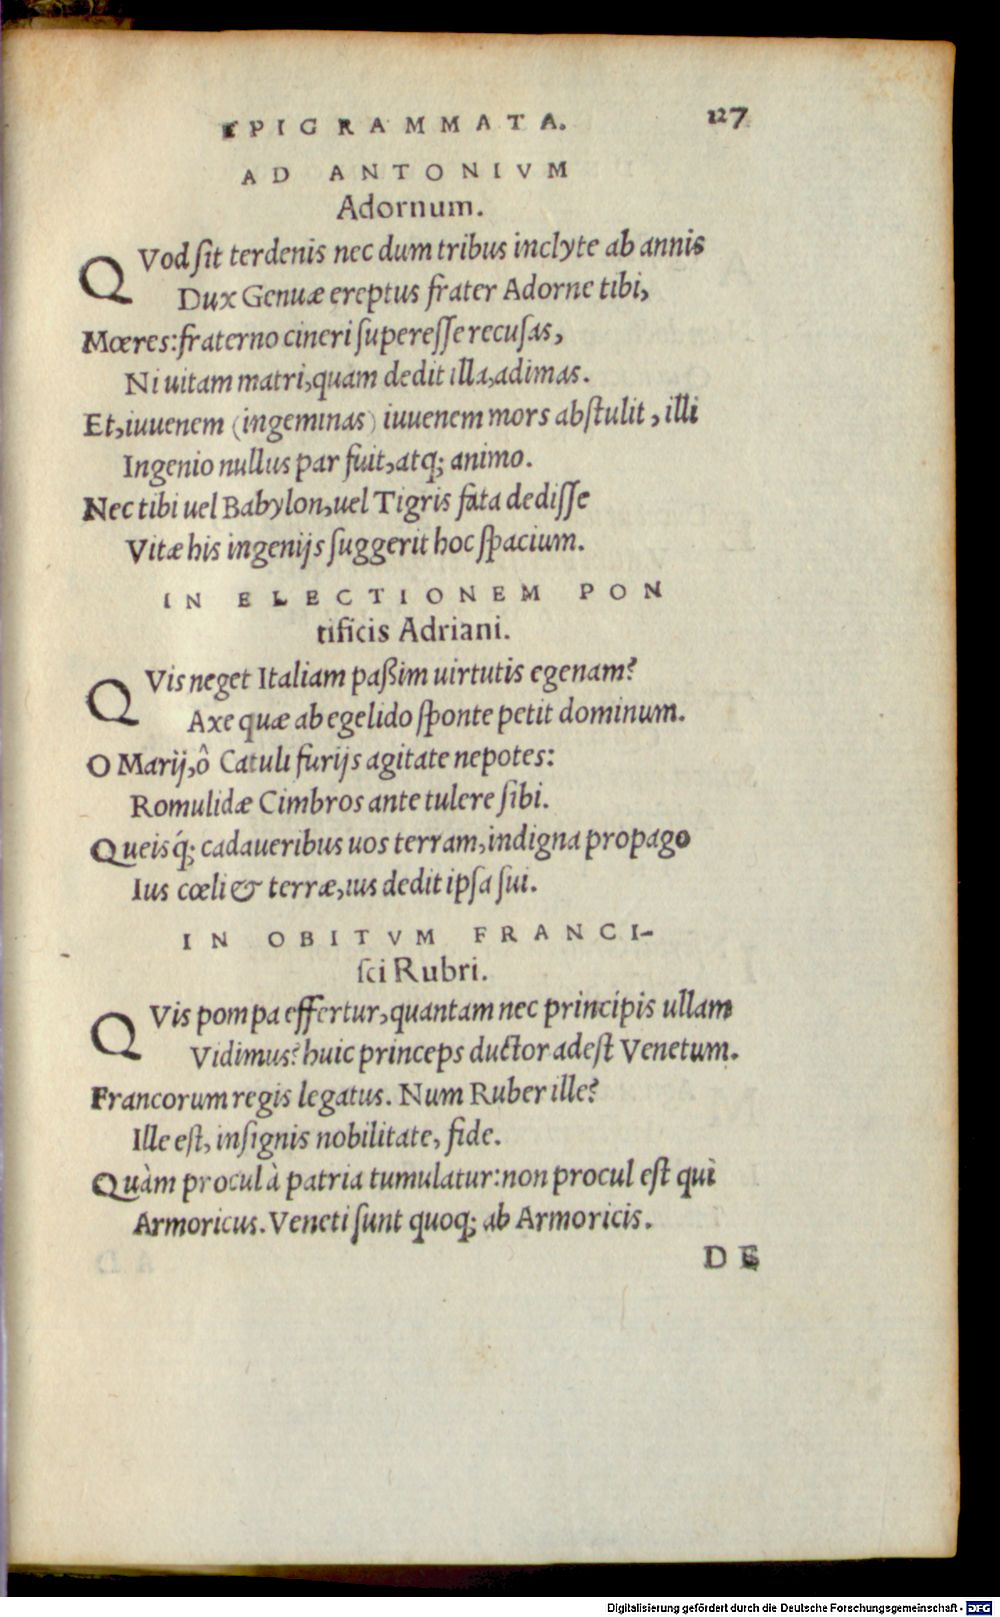 EPIGRAMMATA. 127
AD ANTONIVM
Adornum.
QVod sit terdenis nec dum tribus inclyte ab annis
Dux Genuæ ereptus frater Adorne tibi,
Mœres: fraterno cineri superesse recusas,
Ni uitam matri, quam dedit illa, adimas.
Et, iuuenem (ingeminas) iuuenem mors abstulit, illi
Ingenio nullus par fuit, atq; animo.
Nec tibi uel Babylon, uel Tigris fata dedisse
Vitæ his ingenijs suggerit hoc spacium.
IN ELECTIONEM PON
tificis Adriani.
QVis neget Italiam paßim uirtutis egenam?
Axe quæ ab egelido sponte petit dominum.
O Marij, ô Catuli furijs agitate nepotes:
Romulidæ Cimbros ante tulere sibi.
Queis q́; cadaueribus uos terram, indigna propago
Ius cœli & terræ, ius dedit ipsa sui.
IN OBITVM FRANCI-
sci Rubri.
QVis pompa effertur, quantam nec principis ullam
Vidimus? huic princeps ductor adest Venetum.
Francorum regis legatus. Num Ruber ille?
Ille est, insignis nobilitate, fide.
Quàm procul à patria tumulatur: non procul est quì
Armoricus. Veneti sunt quoq; ab Armoricis.
DE
Digitalisierung gefördert durch die Deutsche Forschungsgemeinschaft - DFG